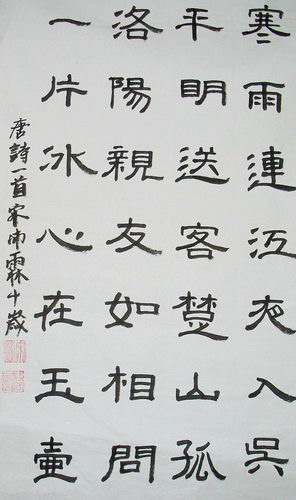 寒雨連江夜入吳
平明送客楚山孤
洛陽親友如相問
一片冰心在玉壺
唐詩一首 霖十歲